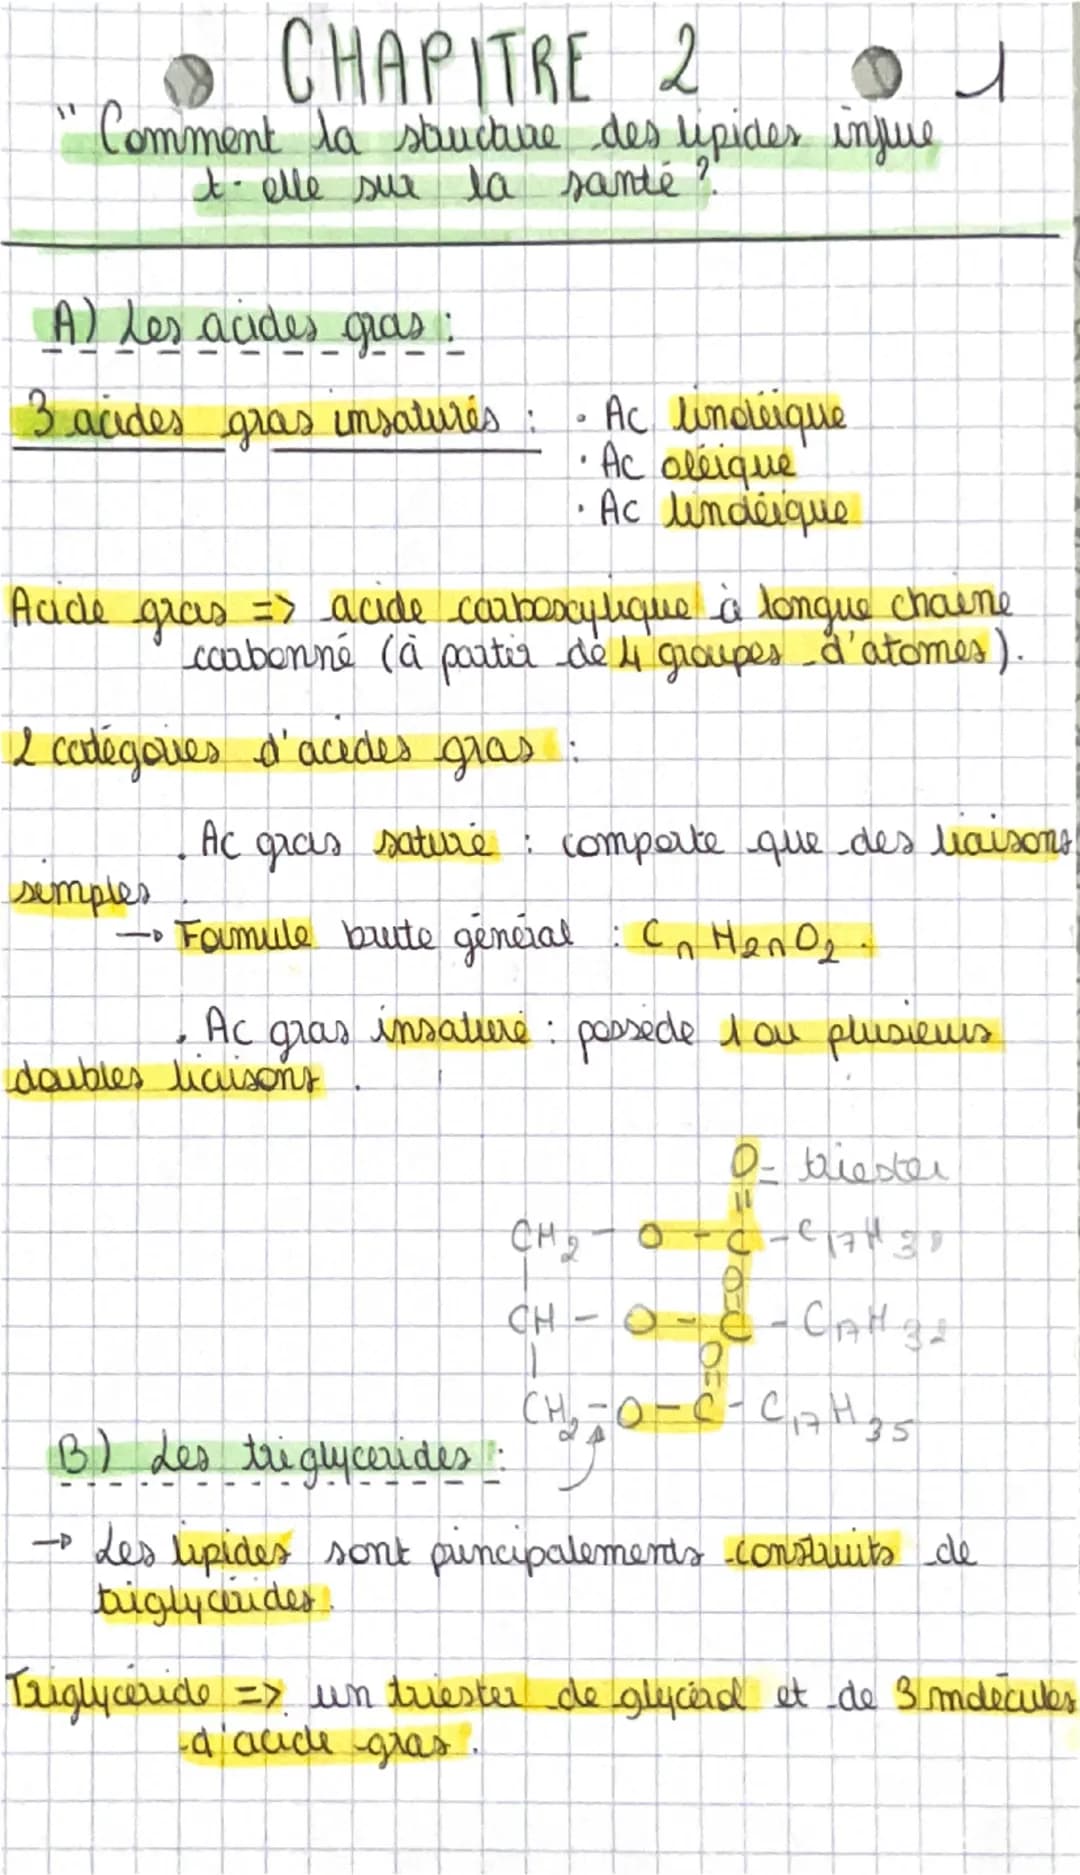 CHAPITRE 2
1
"Comment la structure des lipides influe
t-elle sur la santé?
A) Les acides gras :
3 acides gras insaturés : • Ac linoléique
• Ac oléique
• Ac linoléique
Acide gras => acide carboxylique à longue chaine
carbonné (à partir de 4 groupes d'atomes).
2 catégories d'acides gras :
. Ac gras saturé : comporte que des liaisons
simples.
→ Formule brute général : Cn H2n O2.
. Ac gras insaturé : possède 1 ou plusieurs
doubles liaisons.
O = triester
||
CH2 - O - C - C17H
O
||
CH - O - C - C17H
O
||
CH2 - O - C - C17H35
B) Les triglycerides :
→ Les lipides sont principalements construits de
triglycérides.
Triglycéride => un triester de glycérol et de 3 molécules
d'acide gras.